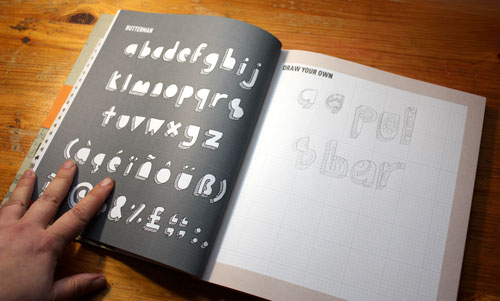 BUTTERMAN
abcdefghij
klmnopqrs
tuvwxyz
(àçéïñôüß)
@&%£
DRAW YOUR OWN
pul
sber